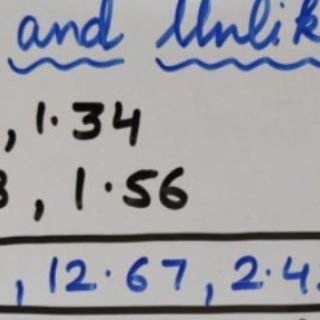 and Unlik
, 1.34
3, 1.56
, 12.67, 2.4